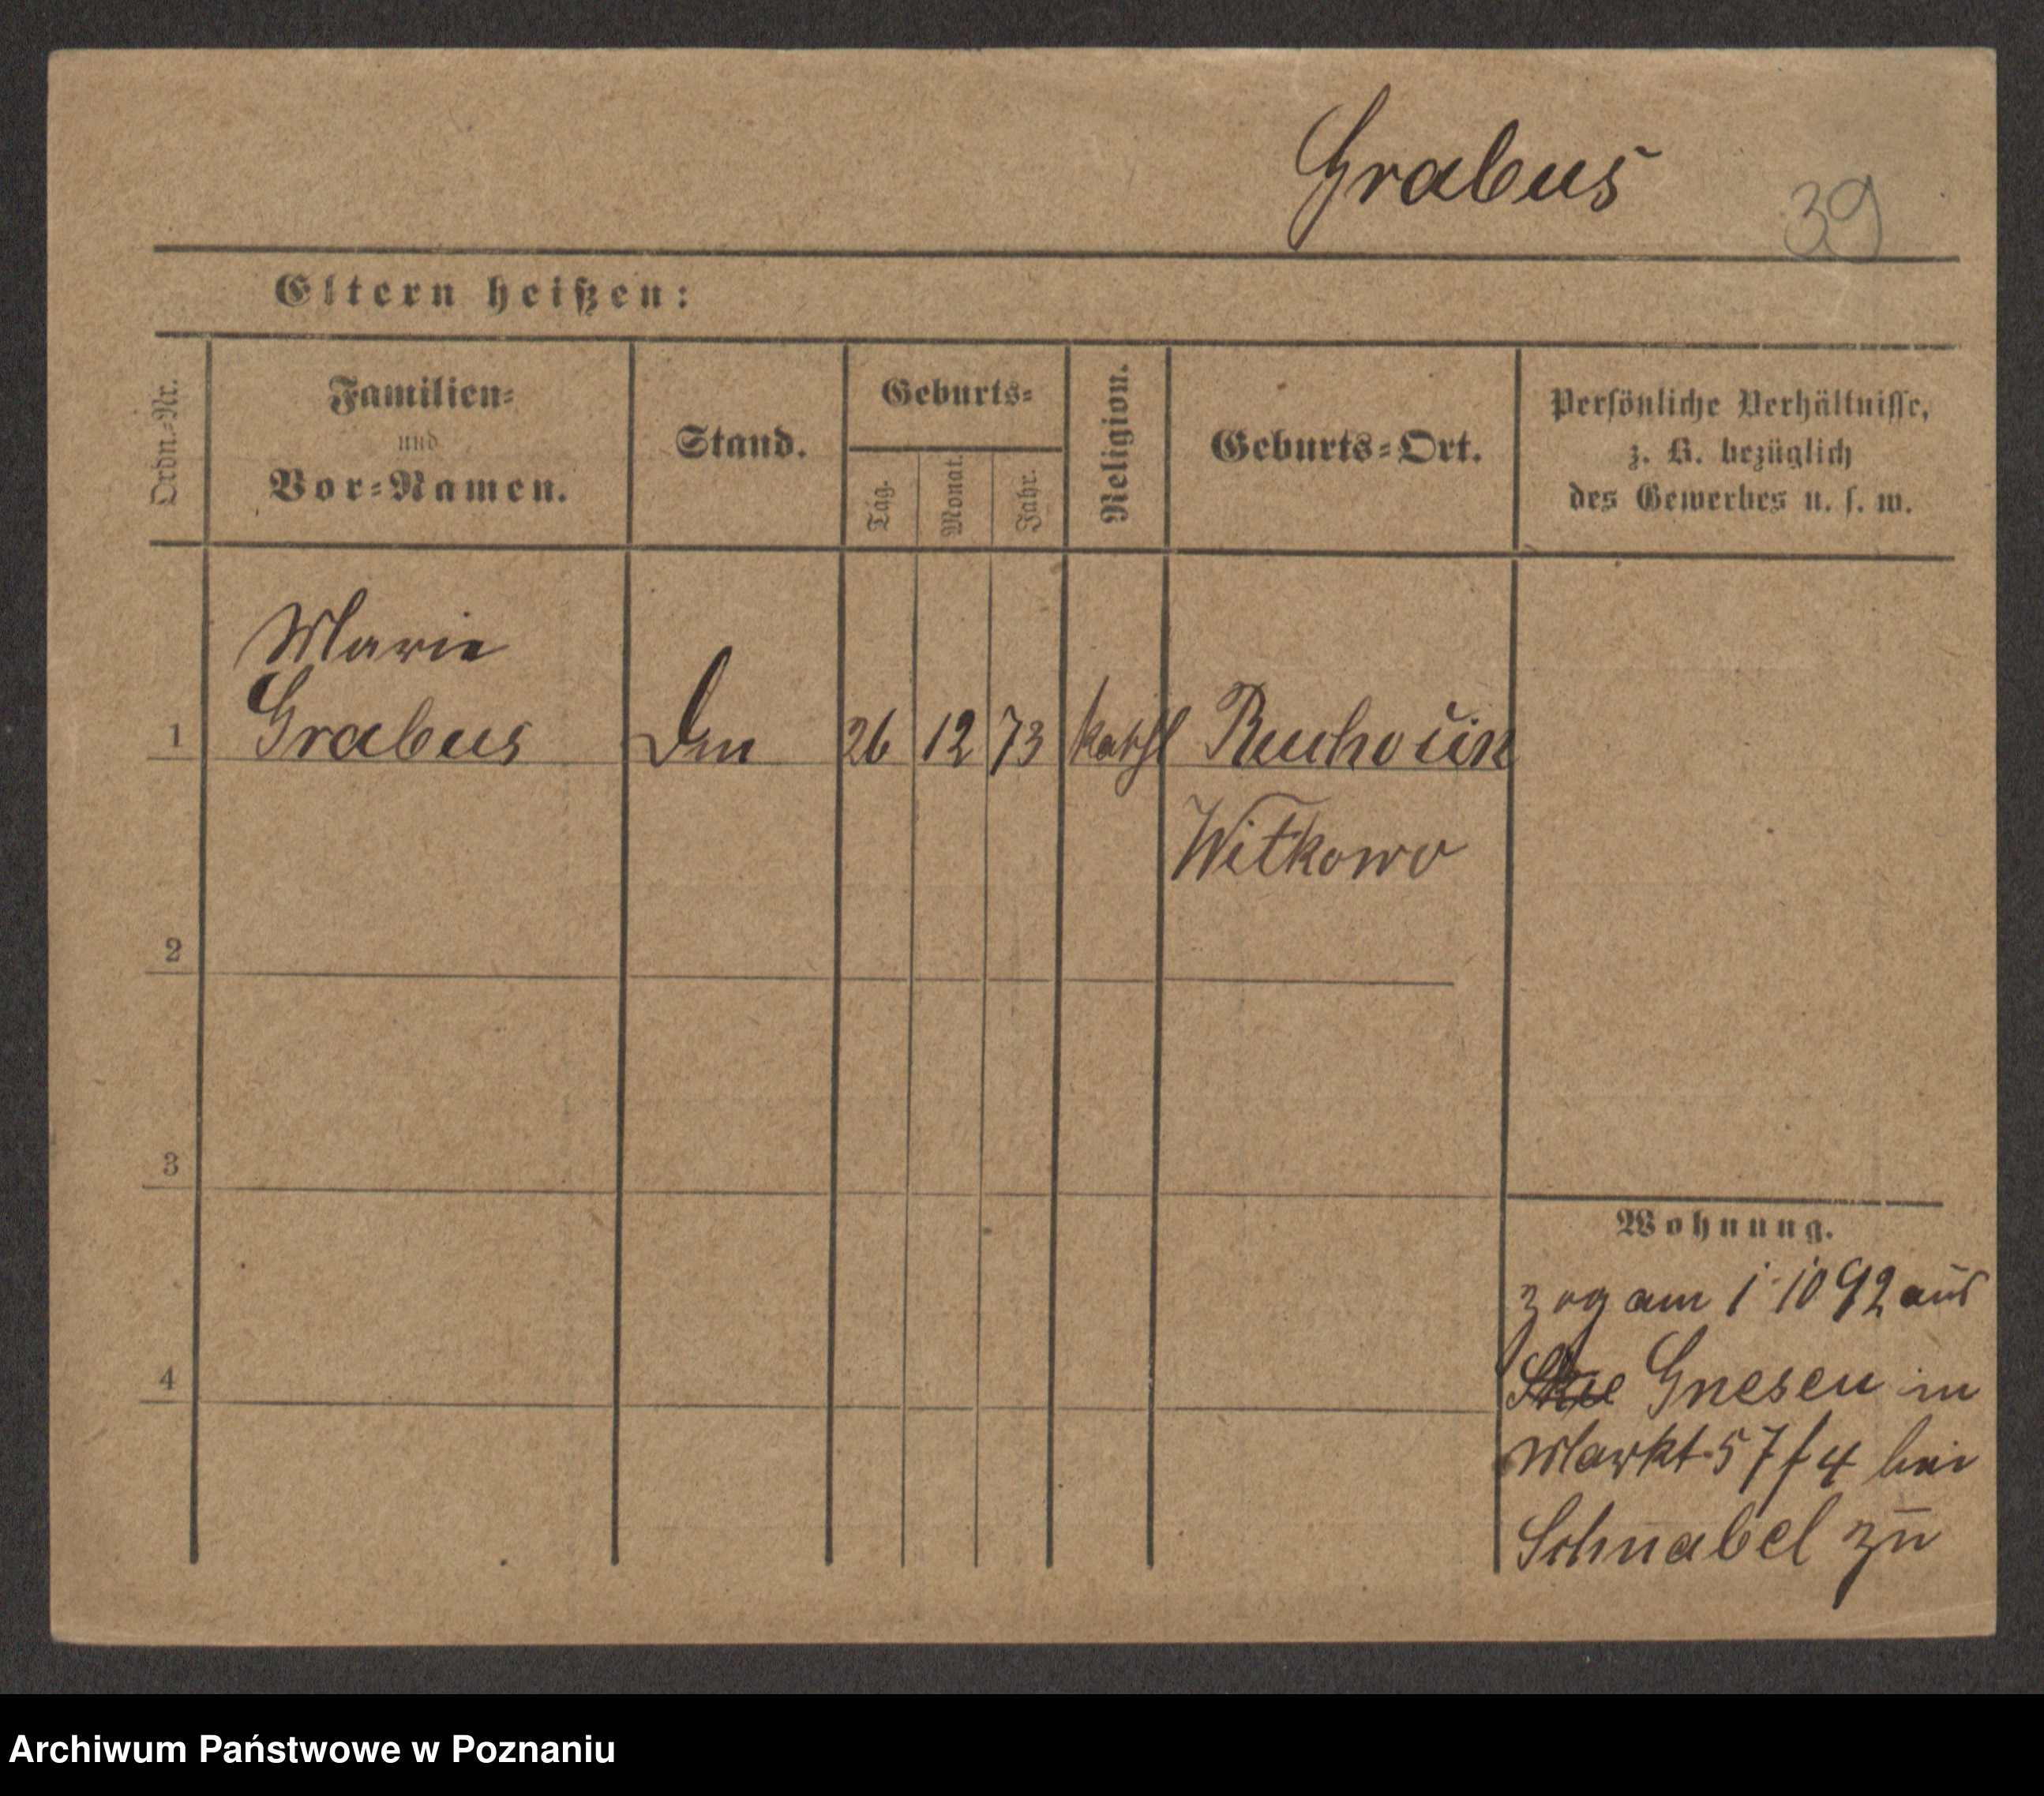 Grabus
39
Eltern heißen:
Ordn.-Nr.
Familien-
und
Vor-Namen.
Stand.
Geburts-
Tag.
Monat.
Jahr.
Religion.
Geburts-Ort.
Persönliche Verhältnisse,
z. B. bezüglich
des Gewerbes u. s. w.
Marie
1 Grabus 26 12 73 kathl
Witkowo
2
3
4
Wohnung.
zog am 1 10 92 aus
Gnesen in
Markt 57 f 4 bei
Schnabel zu
Archiwum Państwowe w Poznaniu